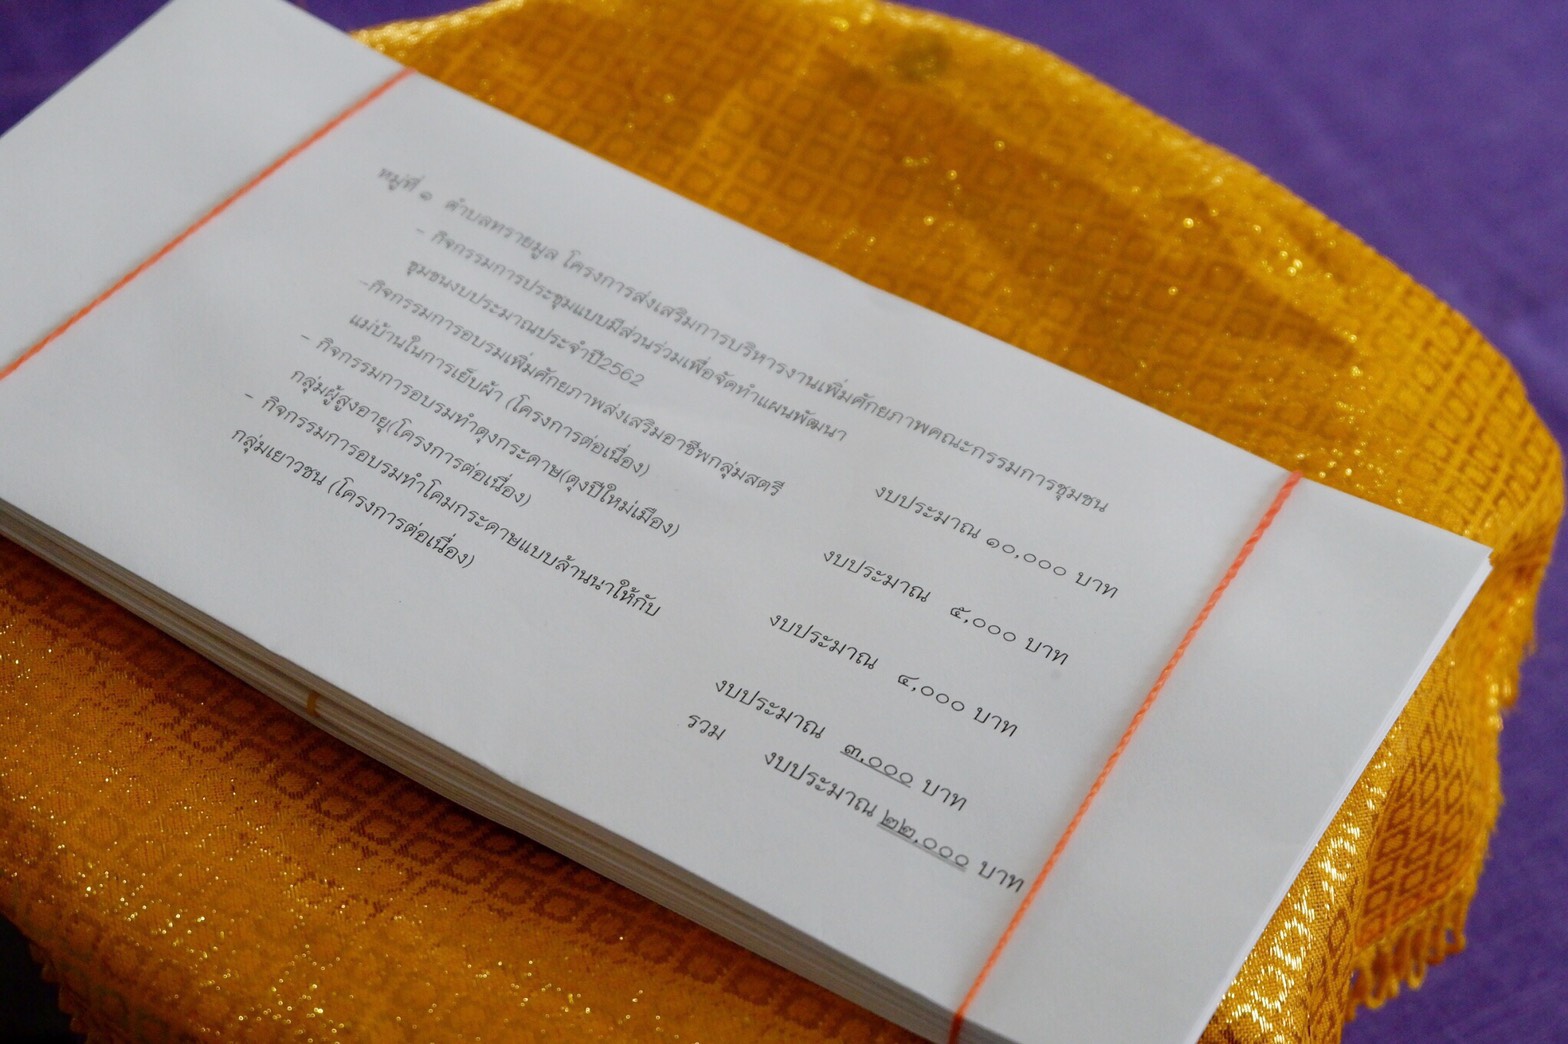 หมู่ที่ ๑ ตำบลทรายมูล โครงการส่งเสริมการบริหารงานเพิ่มศักยภาพคณะกรรมการชุมชน
- กิจกรรมการประชุมแบบมีส่วนร่วมเพื่อจัดทำแผนพัฒนา
ชุมชนงบประมาณประจำปี2562 งบประมาณ ๑๐,๐๐๐ บาท
-กิจกรรมการอบรมเพิ่มศักยภาพส่งเสริมอาชีพกลุ่มสตรี
แม่บ้านในการเย็บผ้า (โครงการต่อเนื่อง) งบประมาณ ๕,๐๐๐ บาท
- กิจกรรมการอบรมทำตุงกระดาษ(ตุงปีใหม่เมือง)
กลุ่มผู้สูงอายุ(โครงการต่อเนื่อง) งบประมาณ ๔,๐๐๐ บาท
- กิจกรรมการอบรมทำโคมกระดาษแบบล้านนาให้กับ
กลุ่มเยาวชน (โครงการต่อเนื่อง) งบประมาณ ๓,๐๐๐ บาท
รวม งบประมาณ ๒๒,๐๐๐ บาท